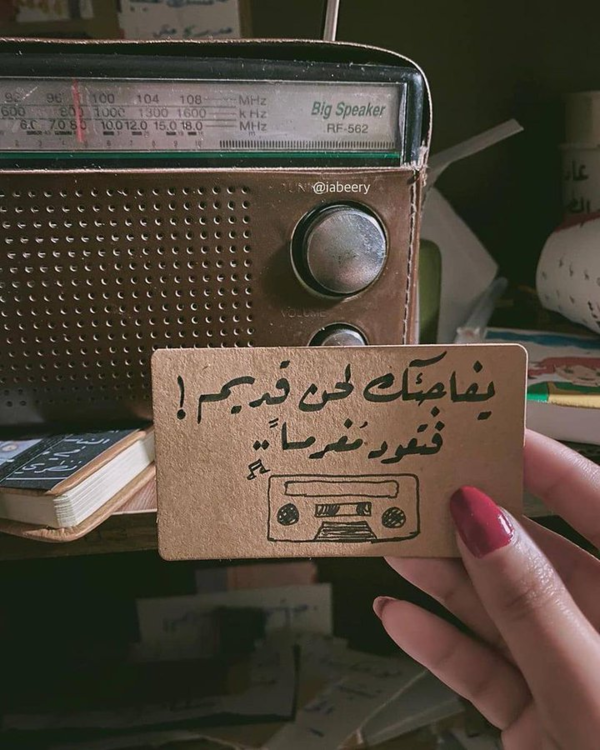 92 96 100 104 108 MHz
600 800 1000 1300 1600 kHz
6.0 7.0 8.0 10.0 12.0 15.0 18.0 MHz
Big Speaker
RF-562
@iabeery
VOLUME
يفاجئك لحن قديم!
فتعود مُغرماً..